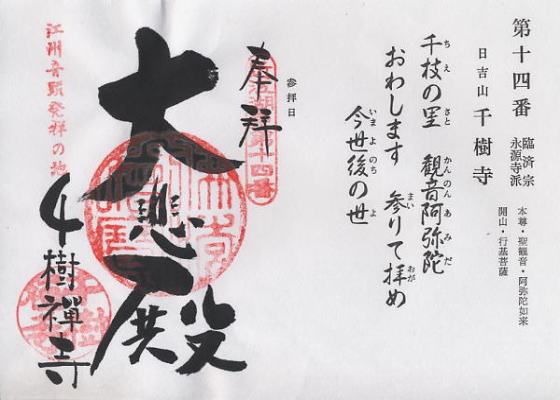 第十四番 臨済宗 永源寺派
本尊・聖観音・阿弥陀如来
開山・行基菩薩
日吉山 千樹寺
千枝の里 観音阿弥陀
ちえ さと かんのんあみだ
おわします 参りて拝め
まい おが
今世後の世
いまよのち よ
参拝日
奉拝
第十四番
大悲殿
千樹禪寺
江州音頭発祥の地